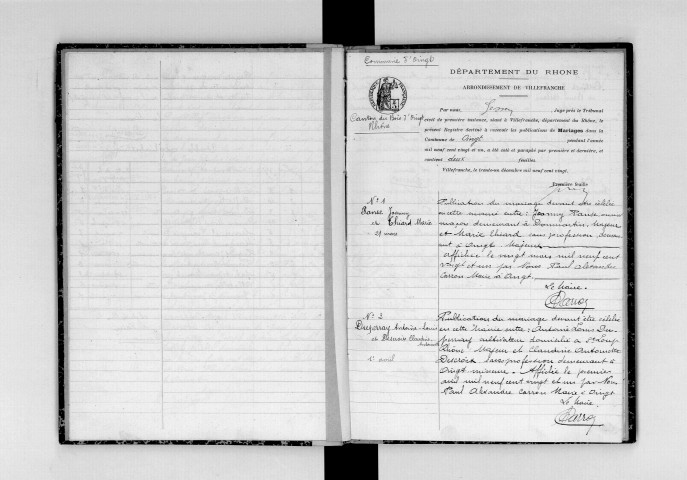 Commune d'Oingt
DÉPARTEMENT DU RHONE
ARRONDISSEMENT DE VILLEFRANCHE
Par nous, Juge près le Tribunal
civil de première instance, séant à Villefranche, département du Rhône, le
présent Registre destiné à recevoir les publications de Mariages dans la
Commune de Oingt pendant l'année
mil neuf cent vingt et un, a été coté et paraphé par première et dernière, et
contient deux feuilles
Villefranche, le trente-un décembre mil neuf cent vingt.
Canton du Bois d'Oingt
Première feuille
N° 1
Joanny
et Chuard Marie
29 mars
Publication du mariage devant être célébré
en cette mairie entre : Joanny
majeur demeurant à Dommartin, Majeur
et Marie Chuard sans profession demeu
rant à Oingt Majeure
affichée le vingt mars mil neuf cent
vingt et un par Nous Paul Alexandre
Carron Maire d'Oingt
Le Maire
Carron
N° 2
Antoine Louis
et Claudine
Antoinette
avril
Publication du mariage devant être célébré
en cette Mairie entre : Antoine Louis
cultivateur domicilié à St Loup
Rhône Majeur et Claudine Antoinette
sans profession demeurant à
Oingt mineure. Affichée le premier
avril mil neuf cent vingt et un par Nous
Paul Alexandre Carron Maire d'Oingt
Le Maire
Carron